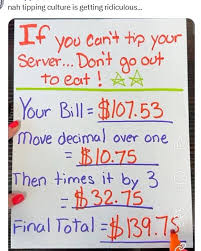 nah tipping culture is getting ridiculous...
If you can't tip your
Server... Don't go out
to eat!
Your Bill = $107.53
Move decimal over one
= $10.75
Then times it by 3
= $32.75
Final Total = $139.75